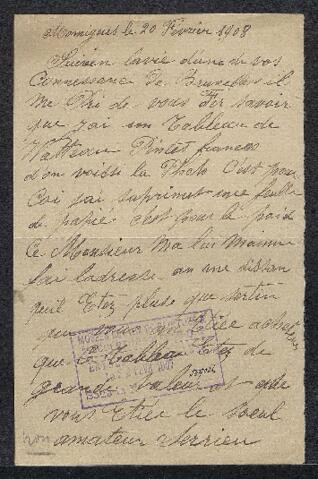 Momignies le 20 Fevrier 1908
Suiven lavie d'une de vos
Connessance de Bruxelles il
me Pri de vous Fer savoir
que jai un Tableau de
Watteau Pintre francas
d'on voisi la Photo C'est pour
Coi jai suprimet une feulle
de papié c'est pour le poid
Ce Monsieur ma lui Maime
fai ladresse an me disan
quil Etez pluse que sertin
que
que ce Tableau Etez de
grande valeur et que
vous Etiez le seul
amateur serrieu
non